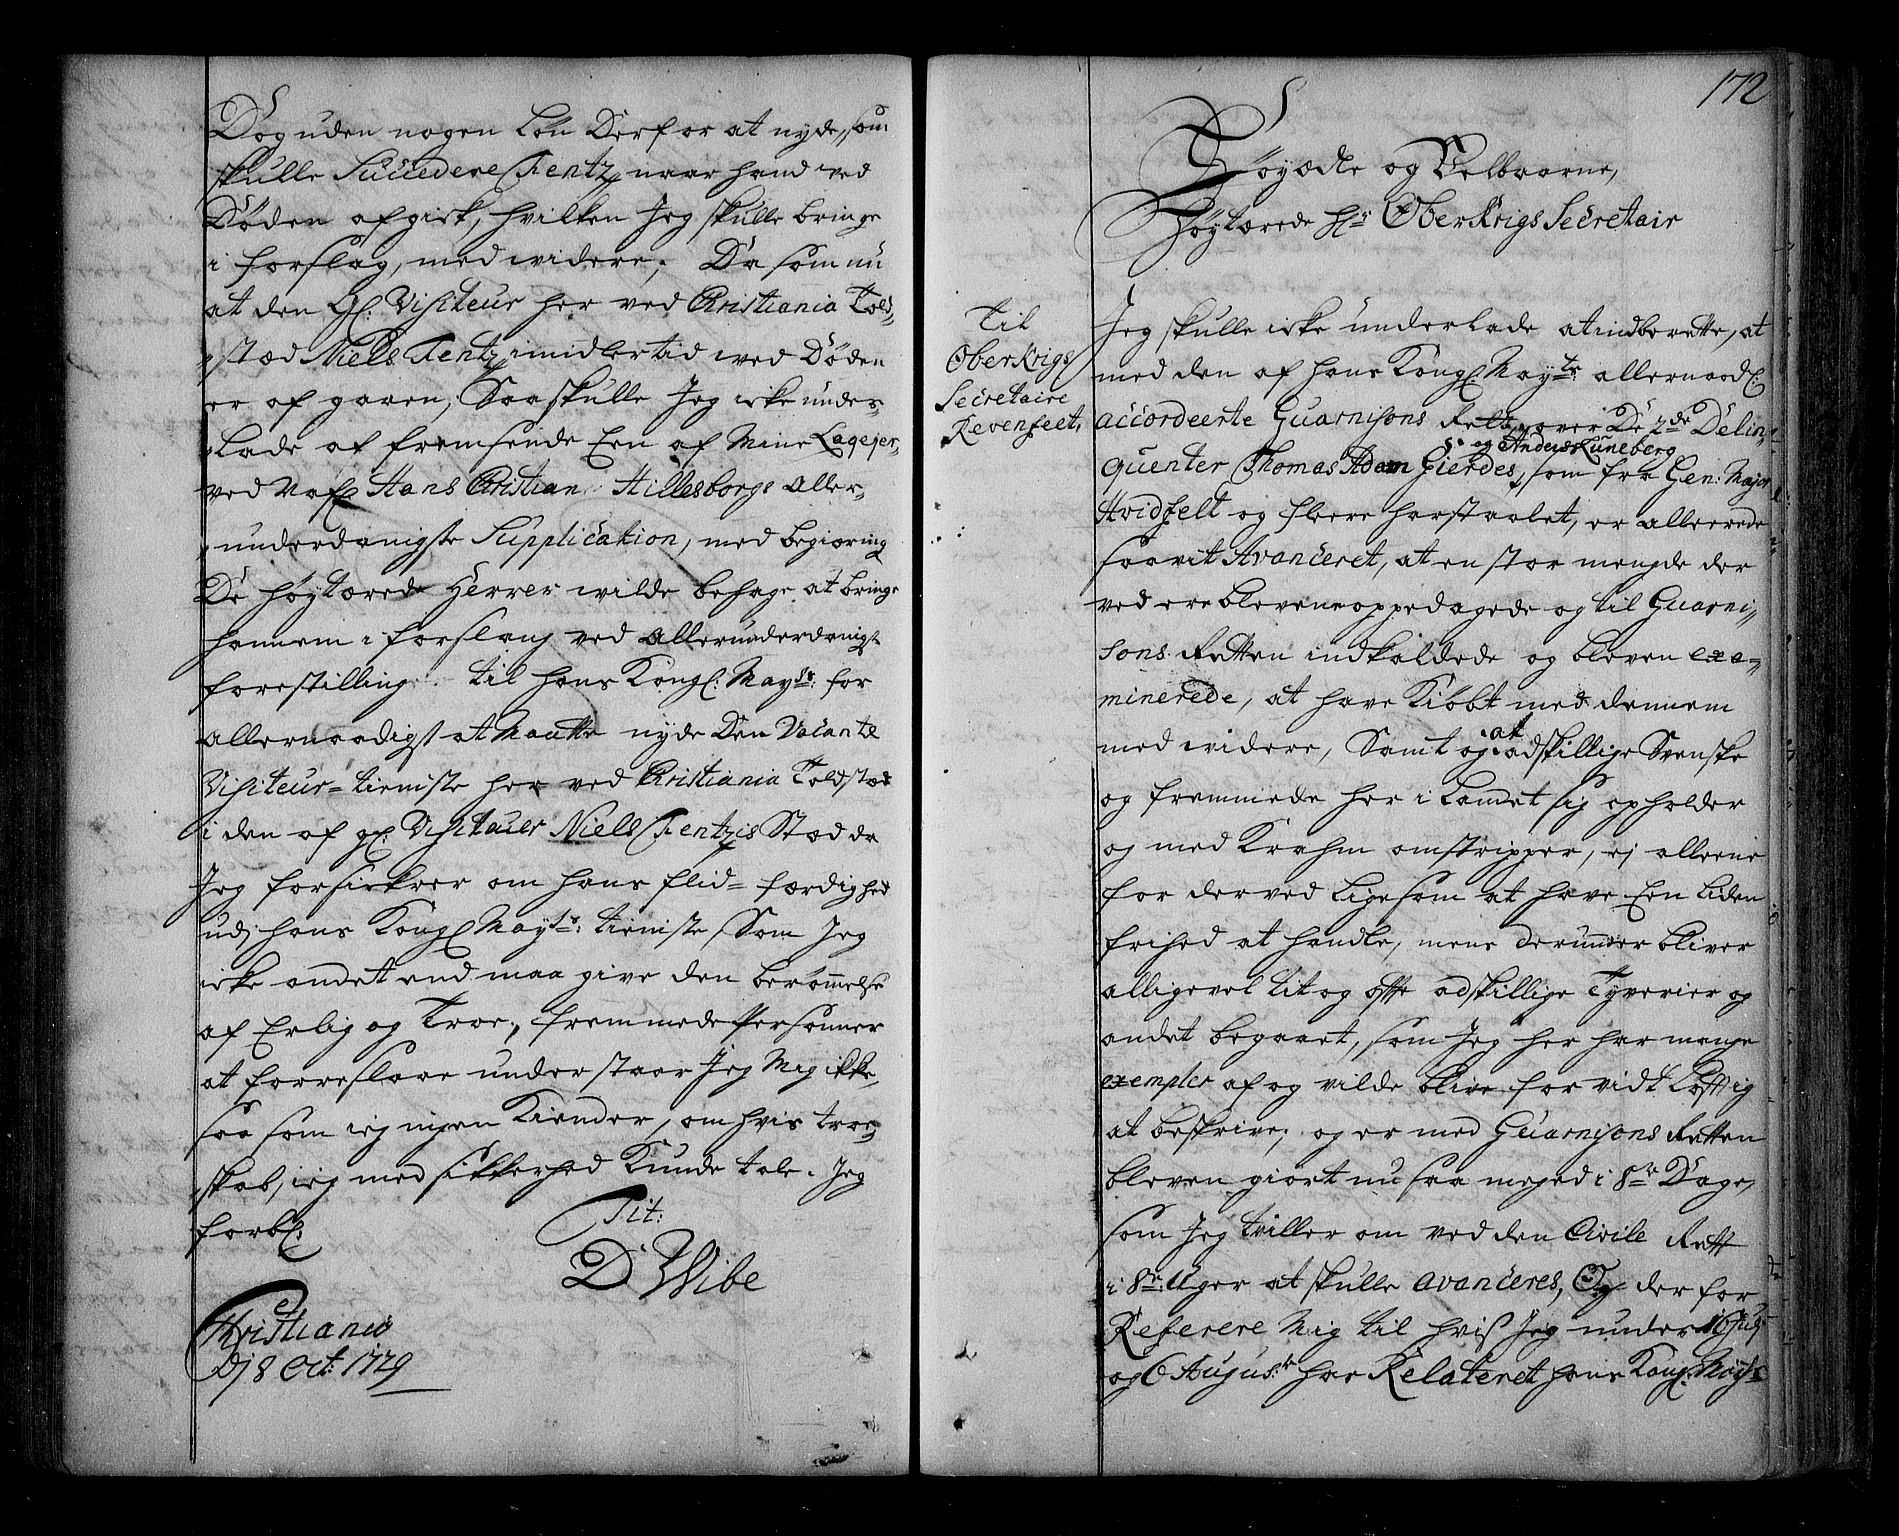 Dog uden nogen lön Derfor at nyde, som
skulle Succedere Tentz, naar hand ved
Döden afgick, hvilken Jeg skulle bringe
i forslag, med widere; Da som nu
at den Gl: Visiteur her ved Christiania Told-
stæd Niels Tentz imidlertid ved Döden
er af gaaen, Saa skulle Jeg icke under-
lade af fremsende Een af mine Laqejer
ved Nafn Hans Christian Hillesborgs Aller-
underdanigste Supplication, med begiæring
De höytærede Herrer wilde behage at bringe
hannem i forslang ved allerunderdanigst
forestilling til hans Kongl: Mayts: for
allernaadigst at maatte nyde Den Vacante
Visiteur-tieniste her ved Christiania Toldstæd
i den af gl: Visitauer Niels Tentzis Stæd da
Jeg forsickrer om hans flid- færdighed
udj hans Kongl Mayts: tieniste, Som Jeg
icke andet end maa give den berömmelse
af Erlig og Troe, fremmede Personner
at forreslaae understaar Jeg Mig ikke,
saa som iej ingen Kiender, om hvis troe-
skab, iej med sikkerhed Kunde tale. Jeg
forbl:
Tit:
D Wibe
Christiania
Dj 8 Oct: 1729
172
Höyædle og Velbaarne,
Höytærede Hr OberKrigs Secretair
Til
OberKrigs
Secretaire
Revenfeet,
Jeg skulle icke underlade at indberette, at
med den af hans Kongl Mayts: allernaadl:
accordeerte Guarnisons Rett, over De 2de Delin-
og Anders Luneberg
quenter Thomas Adam Gierdes, som fra Gen: Major
Hvidfelt og fleere har staalet, er allerede
saavit Avanceret, at en stor mengde der
ved ere blevene oppedagede og til Guarni-
sons Retten indkaldede og bleven exa-
minerede, at have Kiöbt med dennem
med videre, Samt og at adskillige Svenske
og fremmede her i Landet sig opholder
og med Krahm omstripper, ej alleene
for derved ligesom at have Een liden
frihed at handle, mens derunder bliver
alligevel tit og offte adskillige Tyverier og
andet begaaet, som Jeg her har mange
exempler af og vilde blive for vidtlöfftig
at beskrive, og er med Guarnisons Retten
bleven giort nu saa meged i 8te Dage,
som Jeg tviller om ved den Civile Rett
i 8te Uger at skulle avanceres, Og der for
Referere Mig til hvis Jeg under 16 Julj
og 6 August har Relateret hans Kongl. Mayts